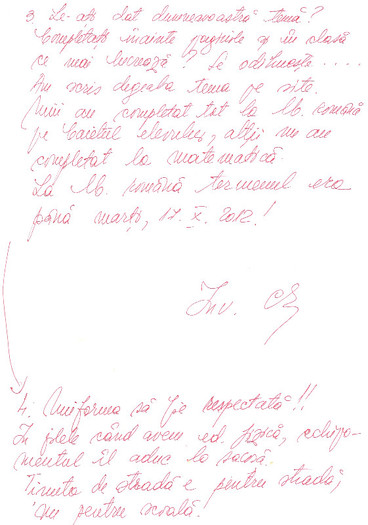 3. Le-ați dat dumneavoastră temă?
Completați înainte paginile și în clasă
ce mai lucrează? Se odihnește....
Am scris degeaba tema pe site.
Unii au completat tot la lb. română
pe Caietul elevului, alții nu au
completat la matematică.
La lb. română termenul era
până marți, 17. X. 2012.!
Înv.
4. Uniforma să fie respectată!!
În zilele când avem ed. fizică, echipa-
mentul îl aduc la sacoșă.
Ținuta de stradă e pentru stradă,
nu pentru școală!